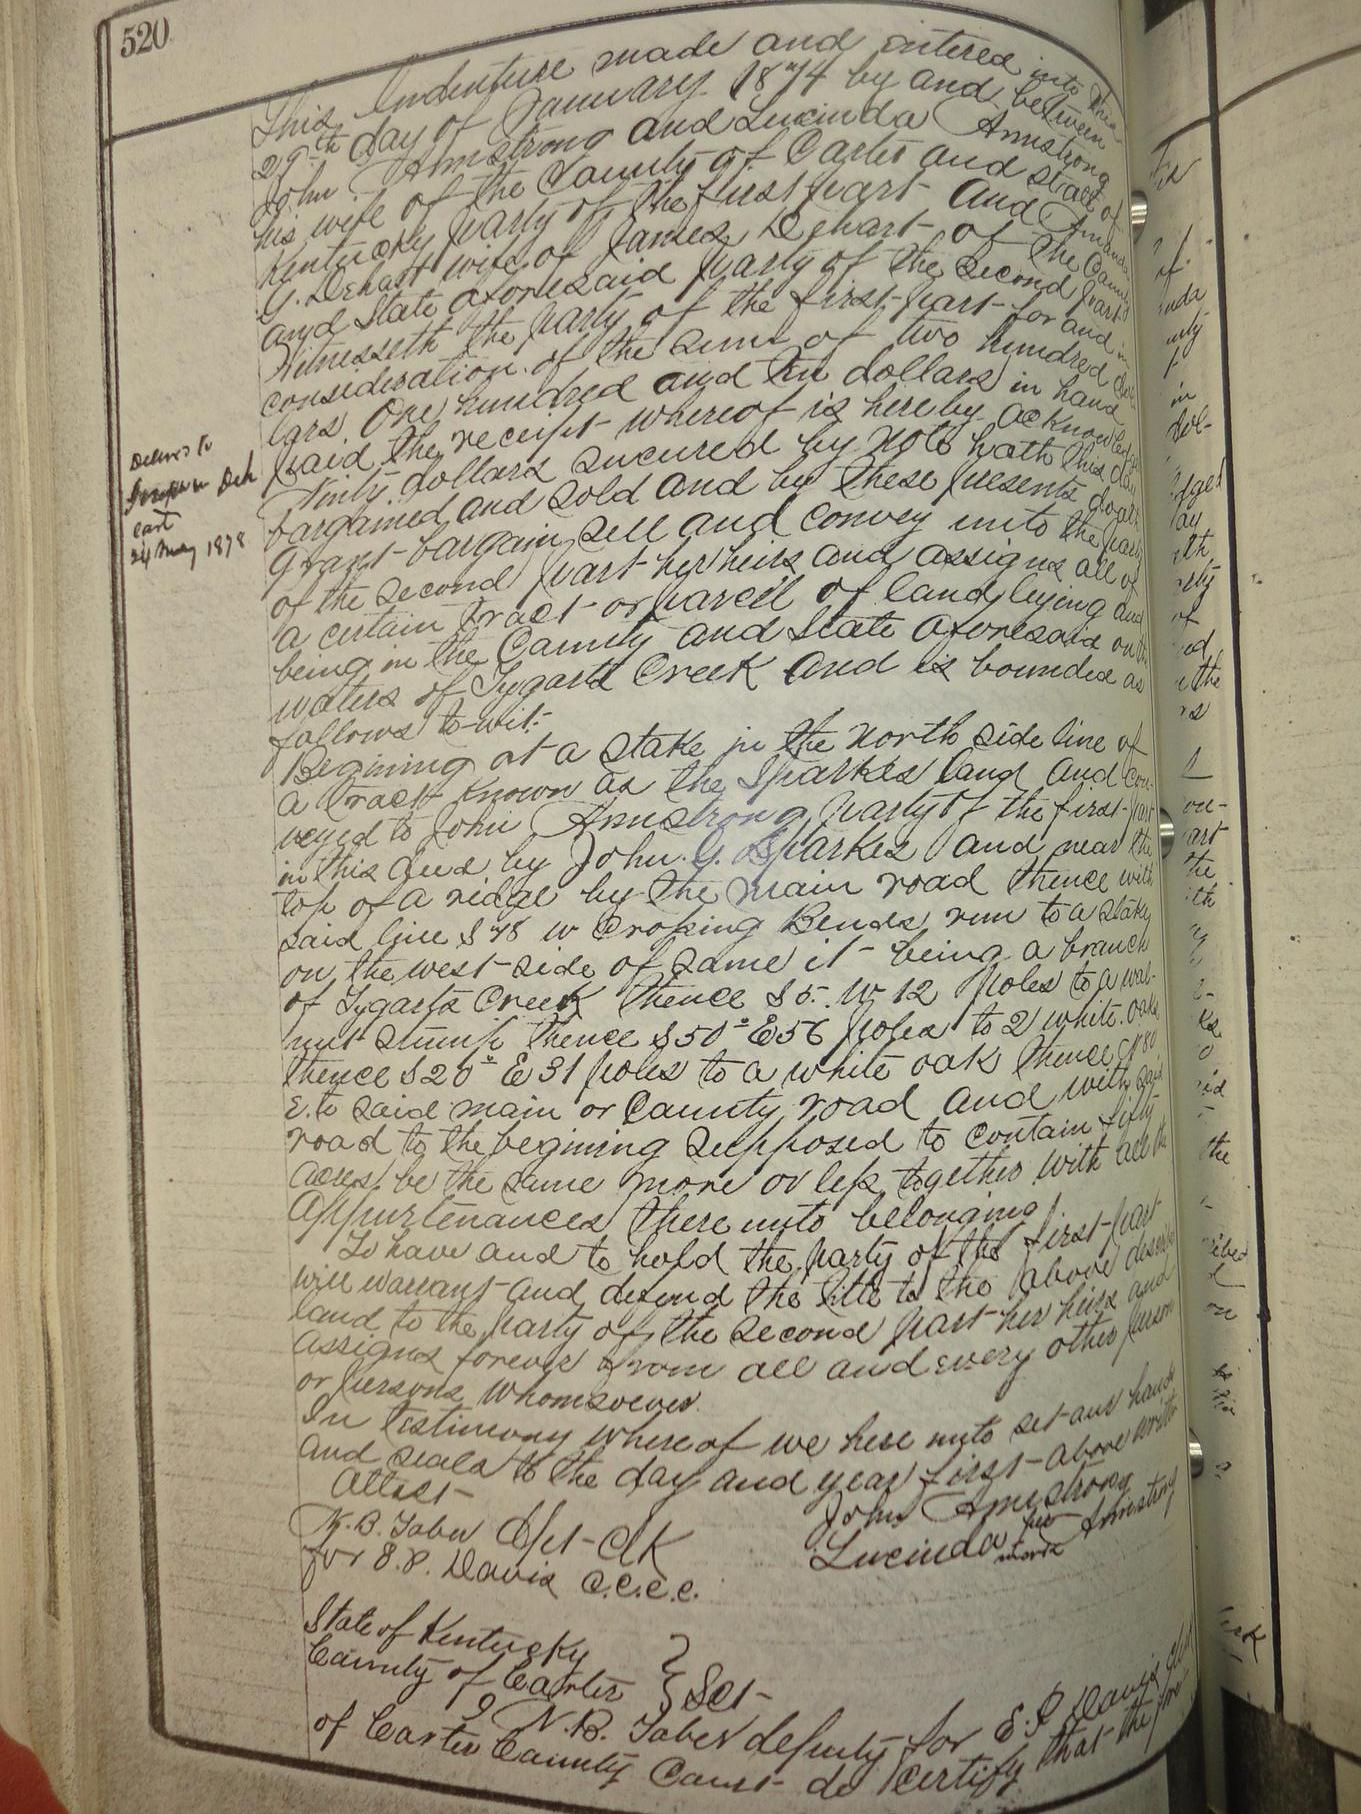 520
This Indenture made and entered into this
29th day of January 1874 by and between
John Armstrong and Lucinda Armstrong
his wife of the County of Carter and state of
Kentucky party of the first part and Amanda
G. Dehart wife of James Dehart of the County
and State aforesaid party of the second part
Witnesseth the party of the first part for and in
consideration of the sum of two hundred dol
lars One hundred and ten dollars in hand
paid the receipt whereof is hereby acknowledged
Ninty dollars secured by note hath this day
bargained and sold and by these presents doth
Grant bargain sell and convey unto the party
of the second part her heirs and assigns all of
a certain tract or parcel of land lying and
being in the County and State aforesaid on the
waters of Tygarts Creek and is bounded as
follows to-wit:
Begining at a stake in the North side line of
a tract known as the Sparkes land and con-
veyed to John Armstrong party of the first part
in this deed by John. G. Sparkes and near the
top of a ridge by the main road thence with
said line S 78 W Croping Bends run to a stake
on the west side of same it being a branch
of Tygarts Creek thence S 5. W 12 poles to a wal-
nut stump thence S 50° E 56 poles to 2 white oaks
thence S 20° E 31 poles to a white oak thence N 80
E. to said main or County road and with said
road to the begining supposed to contain fifty
acres be the same more or less together with all the
appurtenances there unto belonging
To have and to hold the party of the first part
will warrant and defend the title to the above described
land to the party of the second part her heirs and
assigns forever from all and every other person
or persons whomsoever.
In testimony where of we here unto set our hands
and seals the day and year first above written
Attest
John Armstrong
N. B. Taber Dpt Clk
Lucinda her mark Armstrong
for E. P. Davis C.C.C.C.
State of Kentucky
County of Carter } Sct
I N. B. Taber deputy for E. P. Davis clerk
of Carter County Court do certify that the
24 May 1878